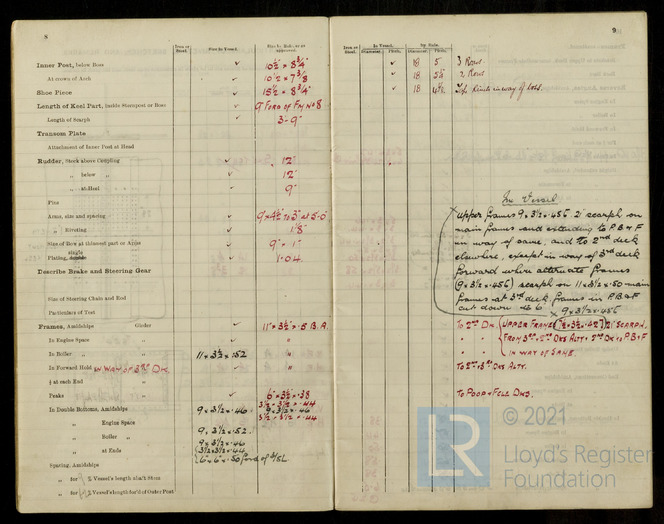 8
Iron or Steel. Size in Vessel. Size by Rule, or as approved.
Inner Post, below Boss ✓ 10½ × 8¾"
At crown of Arch ✓ 10½ × 7⅞
Shoe Piece ✓ 15½ × 8¾"
Length of Keel Part, inside Sternpost or Boss ✓ 9' FORD OF FM No 8
Length of Scarph ✓ 3-9"
Transom Plate
Attachment of Inner Post at Head
Rudder, Stock above Coupling 12"
" below " ✓ 12"
" at Heel ✓ 9"
Pins
Arms, size and spacing ✓ 9 × 4½ TO 3" AT 5-0"
" Riveting ✓ 1⅛"
Size of Bow at thinnest part or Arms ✓ 9" × 1"
Plating, single double ✓ 1.04
Describe Brake and Steering Gear
Size of Steering Chain and Rod
Particulars of Test
Frames, Amidships Girder ✓ 11" × 3½ × .5 B.A.
In Engine Space " ✓ "
In Boiler " " 11 × 3½ × .52 "
In Forward Hold IN WAY OF 3RD DK. " ✓ "
⅕ at each End " "
Peaks " ✓ 6" × 3½" × .38
In Double Bottoms, Amidships 9 × 3½ × .46 9 × 3½ × .46
" Engine Space 3½ × 3½ × .44
" Boiler " 9 × 3½ × .52
" at Ends 9 × 3½ × .46
3½ × 3½ × .44
6 × 6 × .50 ford of 3/5L
Spacing, Amidships
" for ⅕ Vessel's length abaft Stem
" for ⅕ Vessel's length for'd of Outer Post
9
Iron or Steel. In Vessel. By Rule.
Diameter. Pitch. Diameter. Pitch.
✓ 1⅛ 5 3 Rows
✓ 1⅛ 5¼ 2 Rows
✓ 1⅛
In Vessel
Upper frames 9 × 3½ × .456 2' scarph on
main frames and extending to P.B & F
in way of same, and to 2nd deck
elsewhere, except in way of 3rd deck
forward where alternate frames
(9 × 3½ × .456) scarph on 11 × 3½ × .50 main
frames at 3rd deck. frames in P.B & F
cut down to 6
× 9 × 3½ × .456
TO 2ND DK. UPPER FRAMES 2' SCARPH.
" " FROM 3RD - 2ND DKS ALTY & 2ND DK TO P.B & F
" " IN WAY OF SAME.
TO 2ND & 3RD DKS ALTY.
TO POOP & FCLE DKS.
LR
© 2021
Lloyd's Register
Foundation